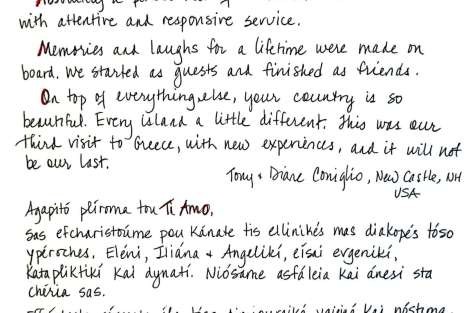 with attentive and responsive service.
Memories and laughs for a lifetime were made on
board. We started as guests and finished as friends.
On top of everything else, your country is so
beautiful. Every island a little different. This was our
third visit to Greece, with new experiences, and it will not
be our last.
Tony + Diane Coniglio, New Castle, NH
USA
Agapitó plíroma tou Ti Amo,
Sas efcharistoúme pou kánate tis ellinikés mas diakopés tóso
ypéroches. Eléni, Iliána & Angelikí, eísai evgenikí,
katapliktikí kai dynatí. Niósáme asfáleia kai ánesi sta
chéria sas.